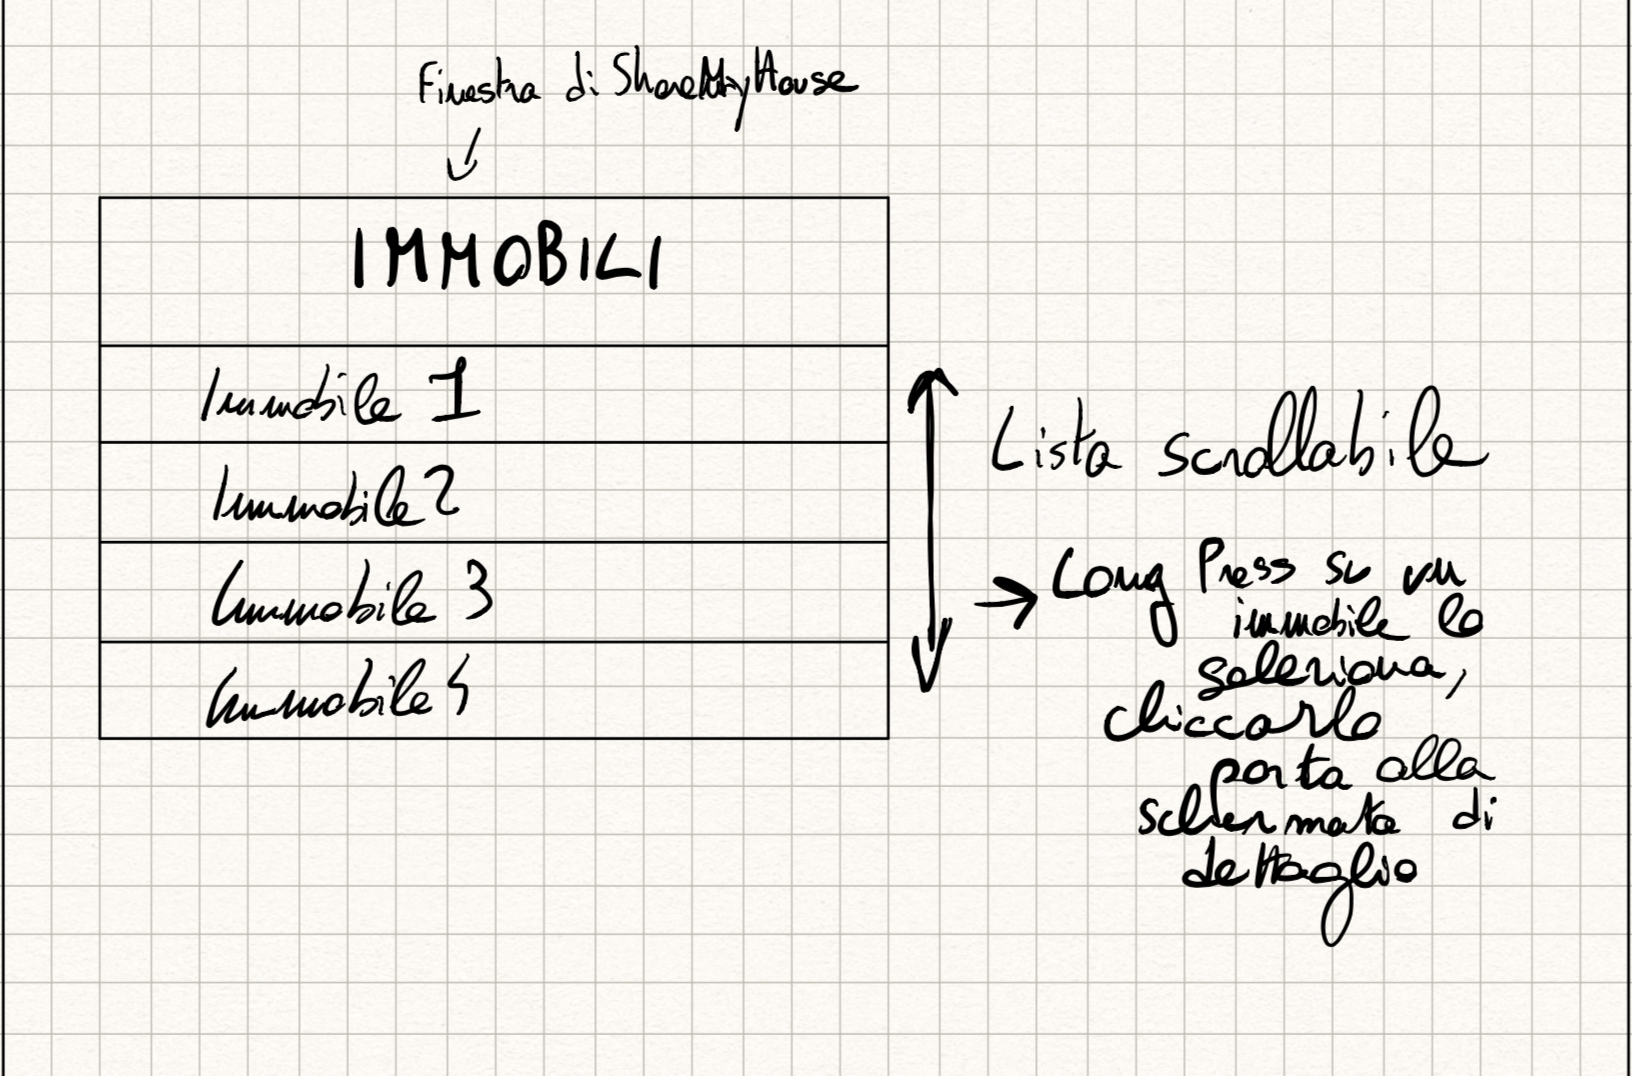 Finestra di ShareMyHouse
IMMOBILI
Immobile 1
Immobile 2
Immobile 3
Immobile 4
Lista scrollabile
Long Press su un
immobile lo
seleziona,
cliccarlo
porta alla
schermata di
dettaglio